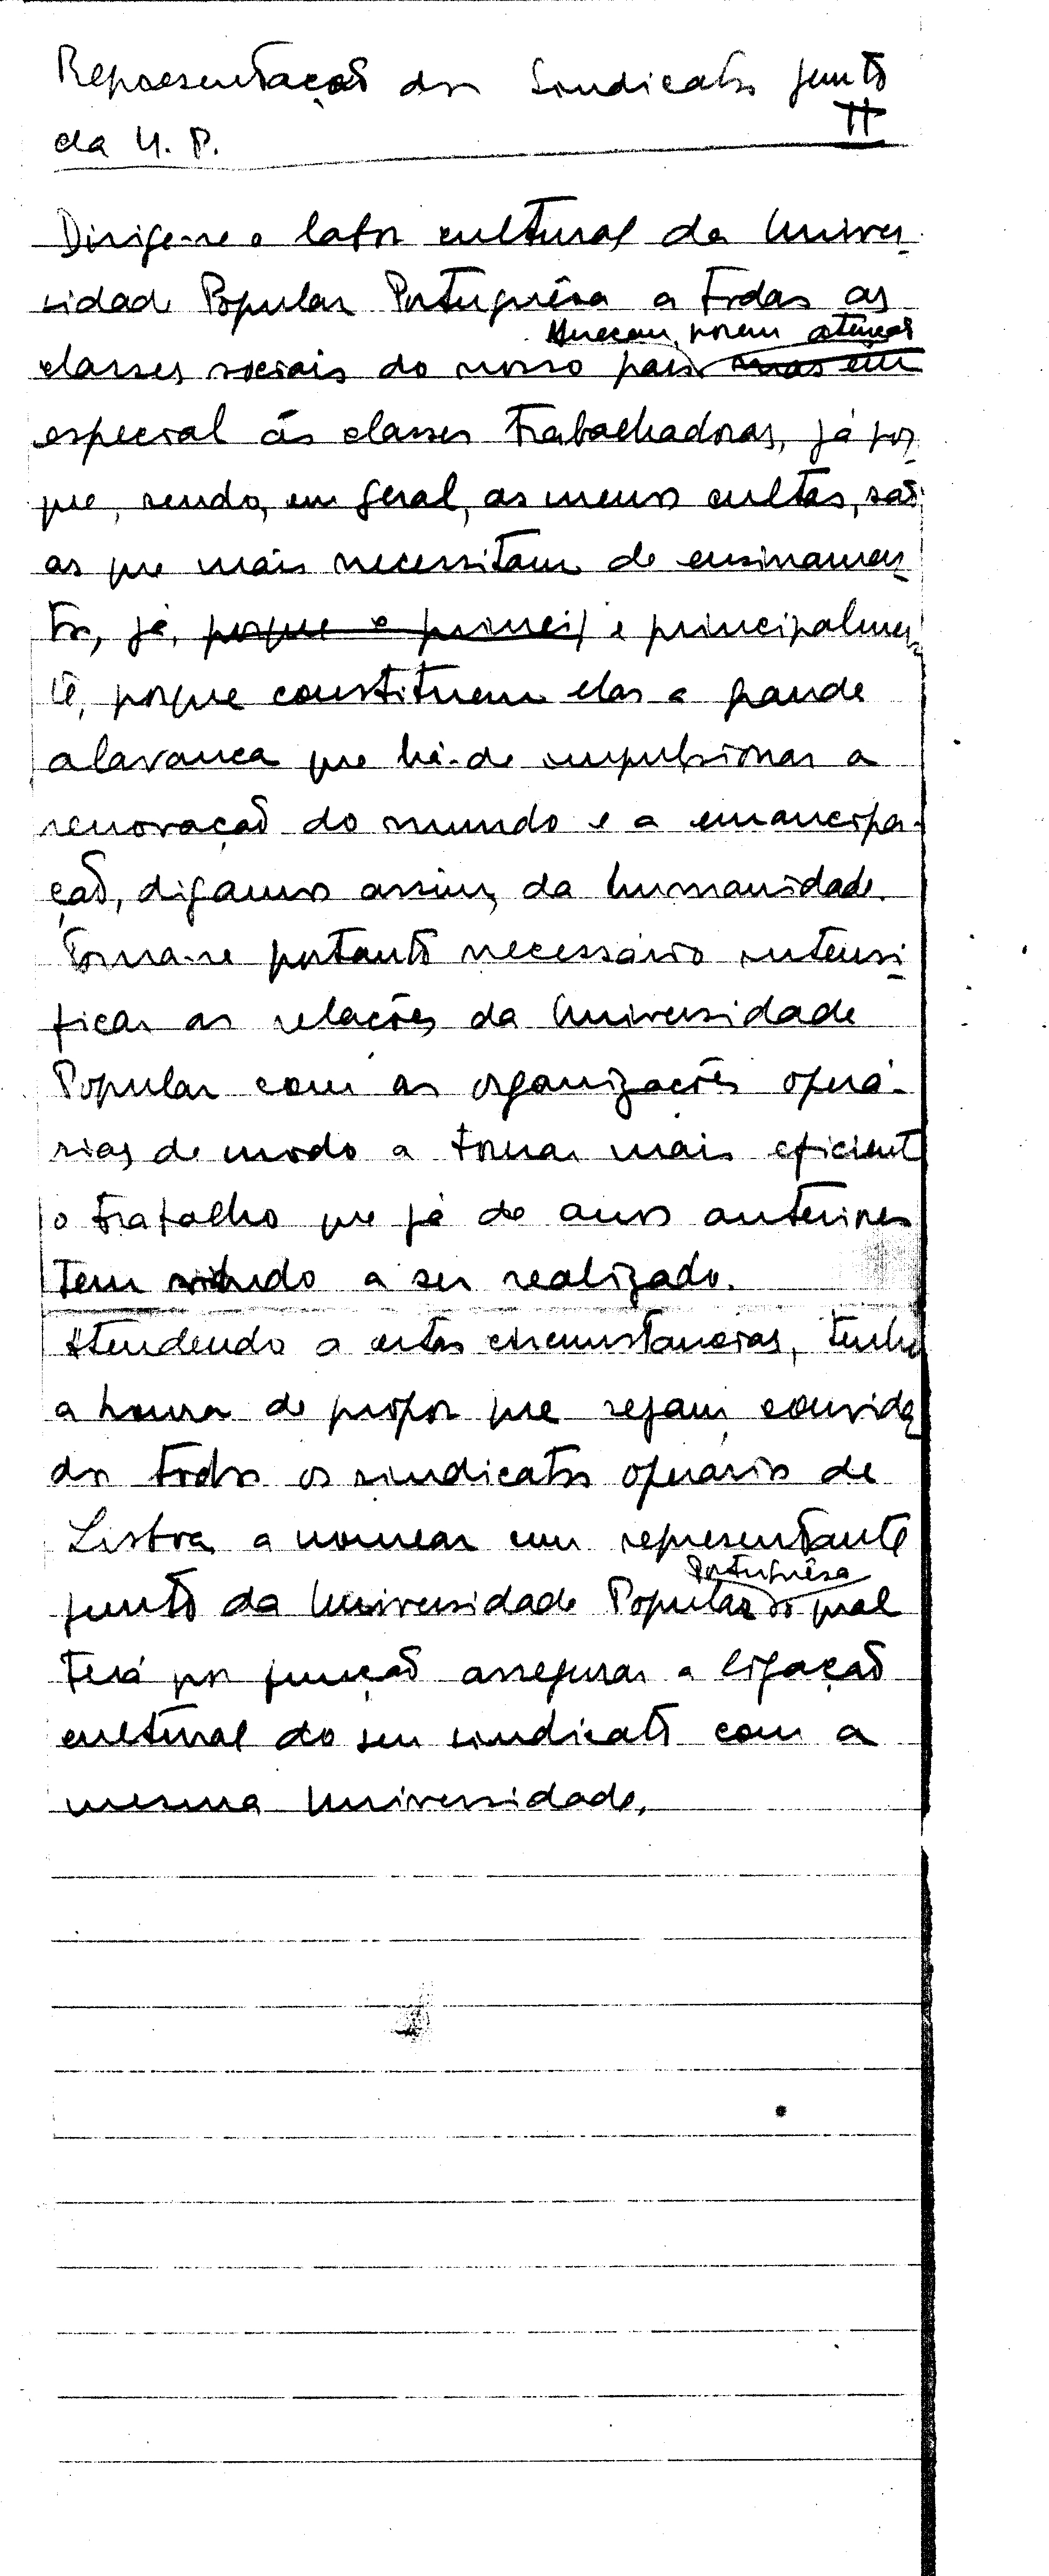 Representação dos Sindicatos junto
da U. P.
II
Dirige-se o labor cultural da Univer-
sidade Popular Portuguêsa a todas as
Merecem, porem atenção
classes sociais do nosso país mas em
especial ás classes trabalhadoras, já por-
que, sendo, em geral, as menos cultas, são
as que mais necessitam de ensinamen-
tos, já, porque e princip e principalmen-
te, porque constituem elas a grande
alavanca que há-de impulsionar a
renovação do mundo e a emancipa-
ção, digamos assim, da humanidade.
Torna-se portanto necessário intensi-
ficar as relações da Universidade
Popular com as organizações operá-
rias de modo a tornar mais eficient
o trabalho que já de anos anteriores
tem vindo a ser realizado.
Atendendo a estas circumstancias, tenho
a honra de propor que sejam convida
dos todos os sindicatos operários de
Lisboa a nomear um representante
Portuguêsa
junto da Universidade Popular o qual
terá por função assegurar a ligação
cultural do seu sindicato com a
mesma Universidade.